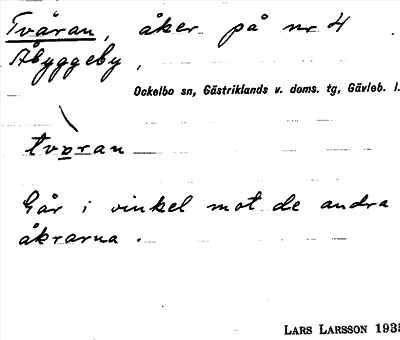 Tväran, åker på nr 4
Åbyggeby,
Ockelbo sn, Gästriklands v. doms. tg, Gävleb. l.
tvøran
Går i vinkel mot de andra
åkrarna.
LARS LARSSON 1935